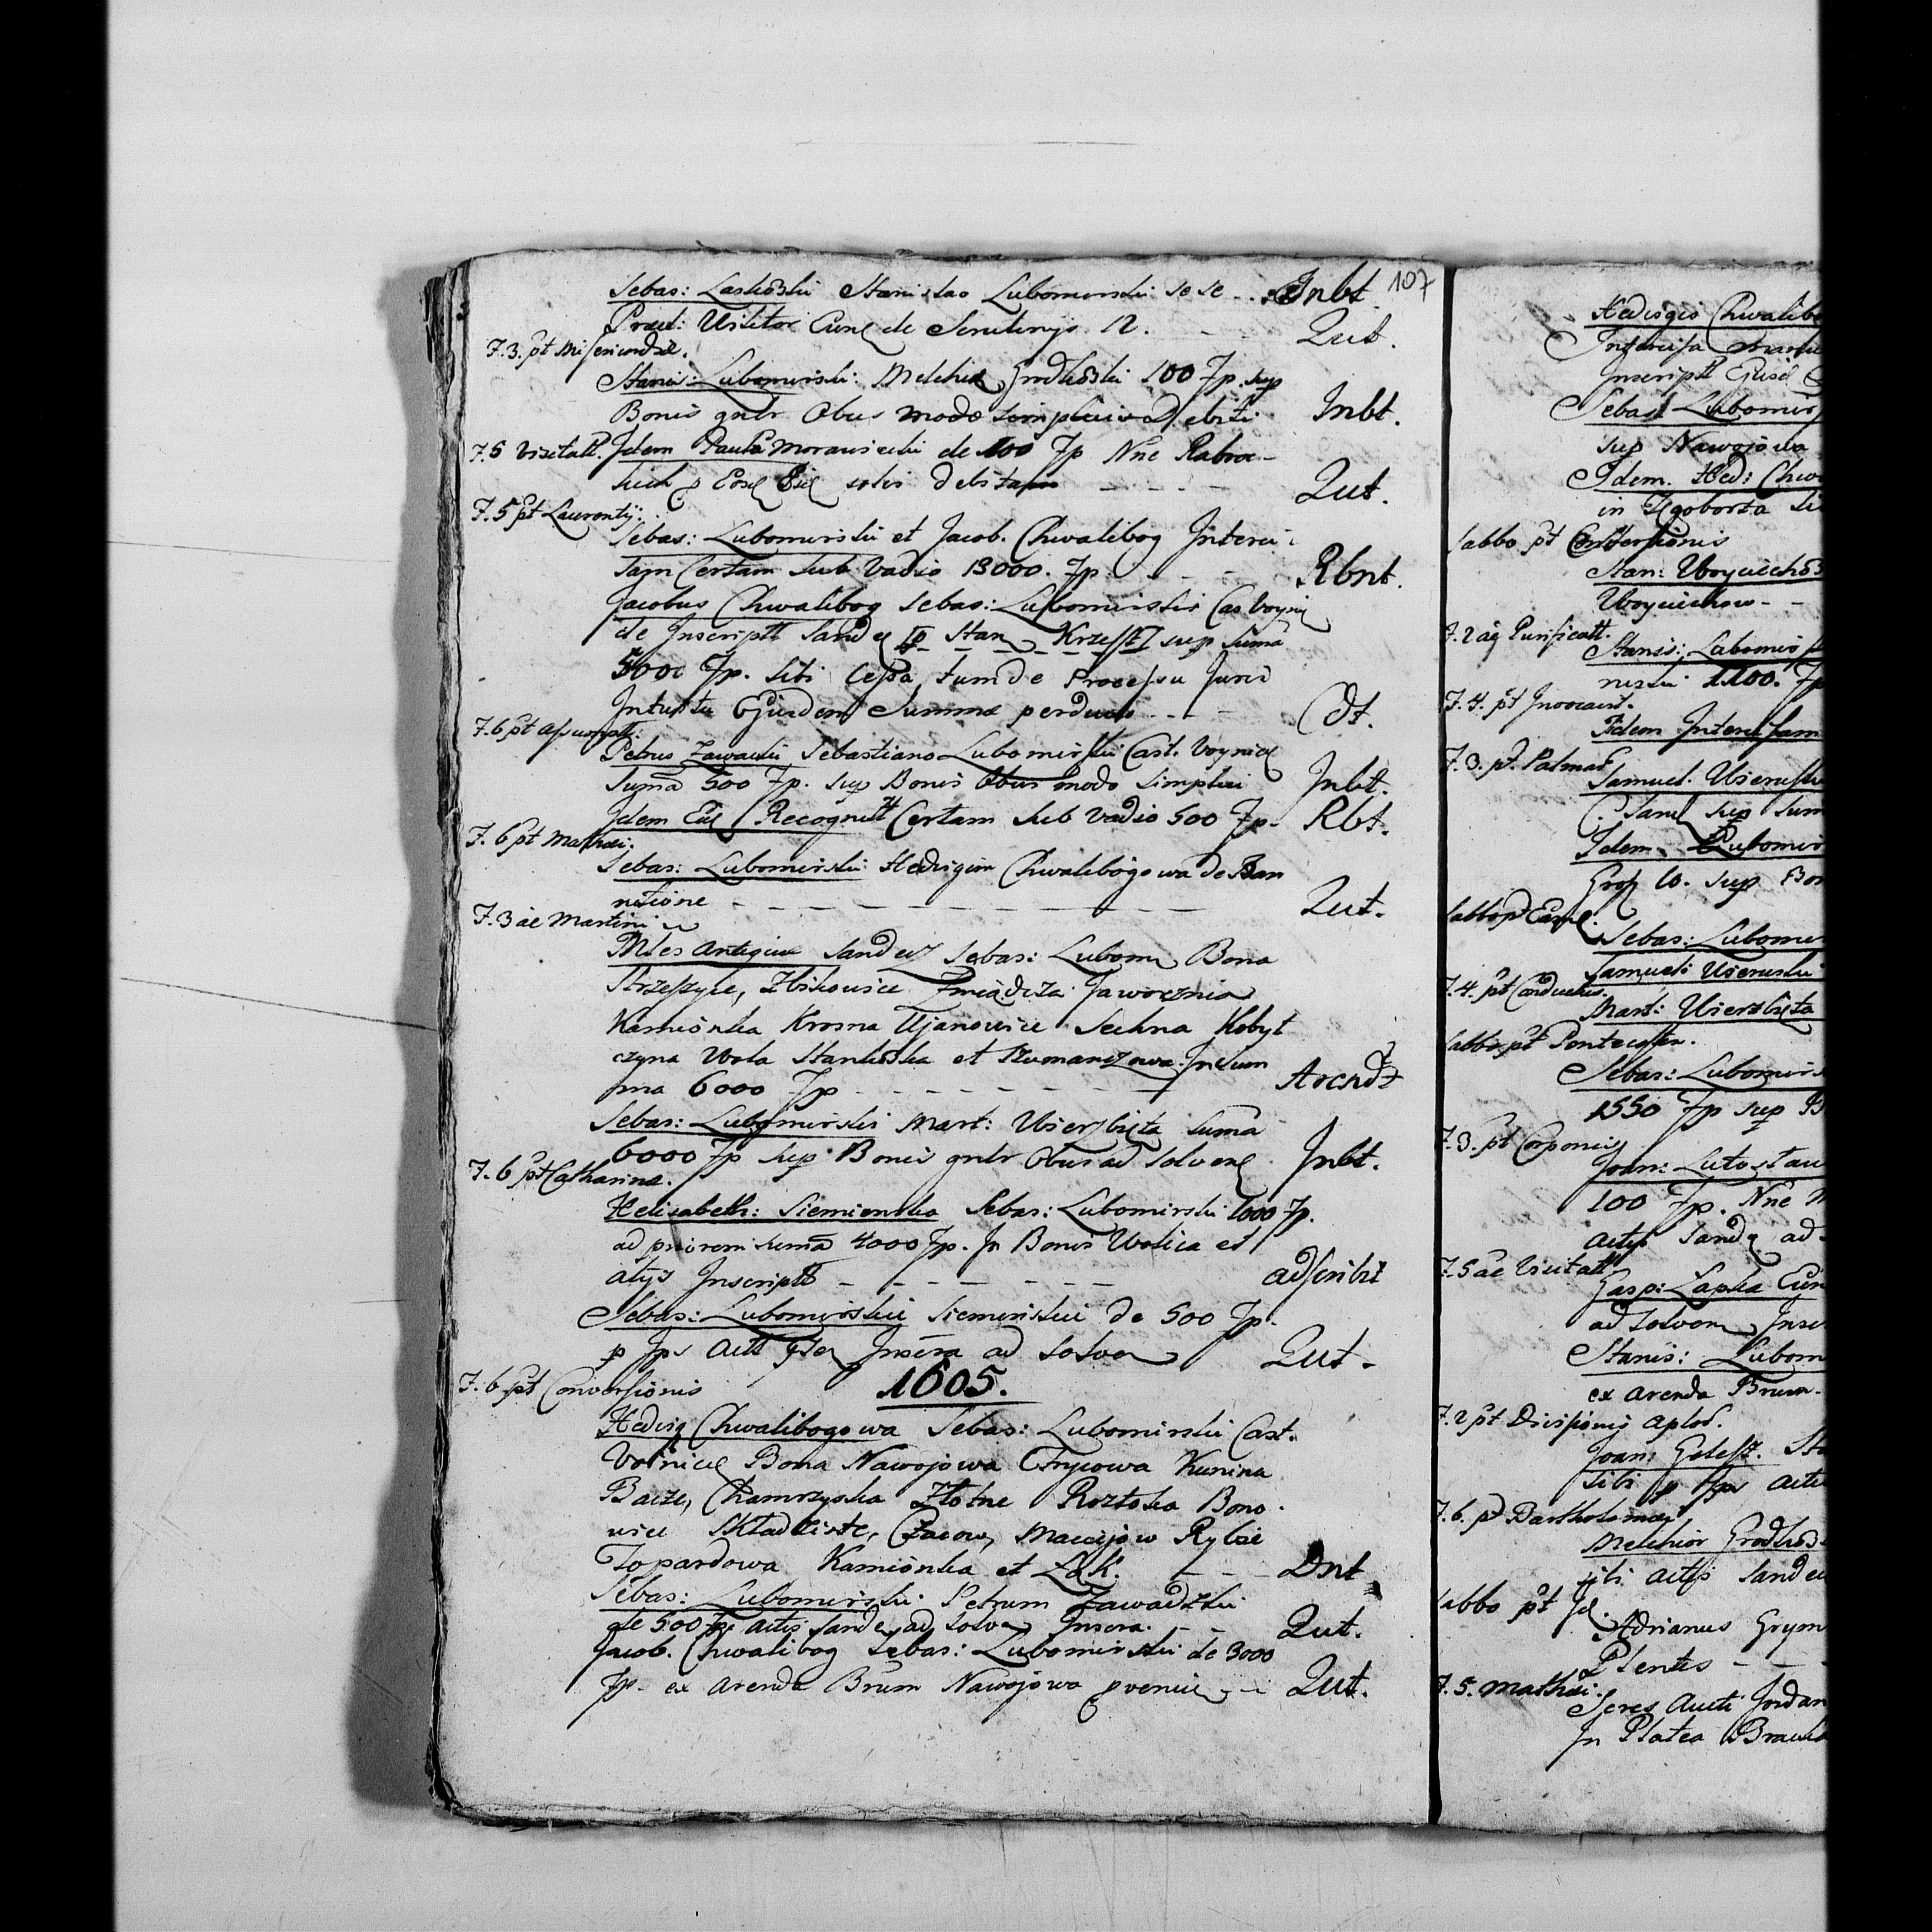 107
Sebas: Laskowski Stanislao Lubomirski se se - - Inbt
Praed: Visitor Cune de Scrutinys 12. Qut.
F. 3. pt Misericordie.
Stanis: Lubomirski Melchior Grodkowski 100 Fp. sup
Bonis gnlr Obus modo simplicis debiti Inbt.
F. 5 Visitatt. Idem Paulo Morawiecki de 100 Fp Nne
p debitam - - - - Qut.
F. 5 pt Laurentij.
Sebas: Lubomirski et Jacob. Chwalibog Interci
sam Certam sub Vadio 13000. Fp. - - - Rbnt.
Jacobus Chwalibog Sebas: Lubomirski Cas Voynic
de Inscriptt Sande p Stan Krzesz sup Suma
5000 Fp. sibi Cessa tum de Processu Juris
Intuitu Ejusdem Summae perducto - - - Cdt.
F. 6 pt Assumptt.
Petrus Zawacki Sebastiano Lubomirski Cast. Voynice
Suma 500 Fp. sup Bonis Obus modo simplici Inbt.
Idem Eid Recognitt Certam sub Vadio 500 Fp. Rbt.
F. 6 pt Mathaei.
Sebas: Lubomirski Hedvigim Chwalibogowa de Ban
nitione - - - - - - - - - Qut.
F. 3 ae Martini
Mles antique Sandez Sebas: Lubom Bona
Strzeszyce, Zbikowice Zmiadcza Jaworznia
Kamionka Krosna Ujanowice Sechna Kobyl
czyna Wola Stankoska et Szumanczowa In sum
ma 6000 Fp - - - - - - - Arendt
Sebas: Lubomirski Mart: Wierzbięta Suma
6000 Fp sup Bonis gnlr Obus ad solvend Inbt.
F. 6 pt Catharinae.
Helisabeth: Siemienska Sebas: Lubomirski 1000 Fp.
ad priorem suma 4000 Fp. In Bonis Wolica et
alijs Inscriptt - - - - - - - adscribit
Sebas: Lubomirskii Siemienskii de 500 Fp.
p Ips Actt Inscra ad solven Qut.
F. 6 pt Conversionis
1605.
Hedvig Chwalibogowa Sebas: Lubomirski Cast.
Voinice Bona Nawojowa Frycowa Kunina
Bacze, Chamrzyska Złotne Roztoka Bono
wice Składziste, Czacow, Maciejow Rybie
Zopardowa Kamionka et Łęk. - - - Dnt
Sebas: Lubomirski Petrum Zawadzki
de 500 Fp. actis Sande ad solven Inscra. - - Qut.
Jacob. Chwalibog Sebas: Lubomirski de 3000
Fp. ex arenda Brum Nawojowa provenie - - Qut.
Hedvigis Chwalib
Intercisa
Inscriptt Ejusd
Sebast Lubomir
sup Nawojowa
Idem. Hed: Chw
in
Sabbo pt Conversionis
Stan: Woyciechos
Woyciechow - -
F. 2 ag Purificatt.
Stanis: Lubomirs
1100. Fp
F. 4. pt Invocavit.
Idem Intercisam
F. 3. pt. Palmar
Samuel. Wierusz
Sand sup Sum
Idem Lubomir
Gros 10. sup Bon
Sabbo pt Exp
Sebas: Lubomir
Samueli Wieruski
F. 4. pt Conductus.
Mart: Wierzbięta
Sabbo pt Pentecosten.
Sebas: Lubomirs
1550 Fp sup B
F. 3. pt Corporis
Joan: Lutostaw
100 Fp. Nne
actis Sande ad
F. 5 ae Visitatt
Gasp: Łapka
ad solven Inscr
Stanis: Lubom
ex arenda Brum.
F. 2 pt Divisionis Aplor.
Joan: Gelesz. Sta
sibi p Ips actis
F. 6. pt Bartholomaei
Melchior Grodkows
sibi actis Sande
Sabbo pt Id.
Adrianus Grym
Plentis - - -
F. 5. Mathaei.
Seres Aucti Jordan
In Platea Bracka